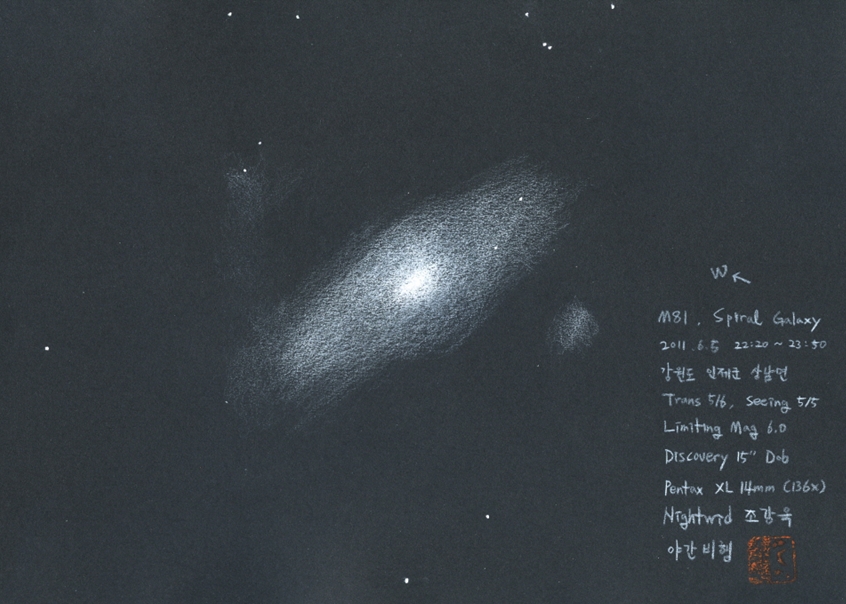 W
M81, Spiral Galaxy
2011.6.5 22:20~23:50
강원도 인제군 상남면
Trans 5/6, Seeing 5/5
Limiting Mag 6.0
Discovery 15" Dob
Pentax XL 14mm (136x)
Nightwid 조강욱
야간비행